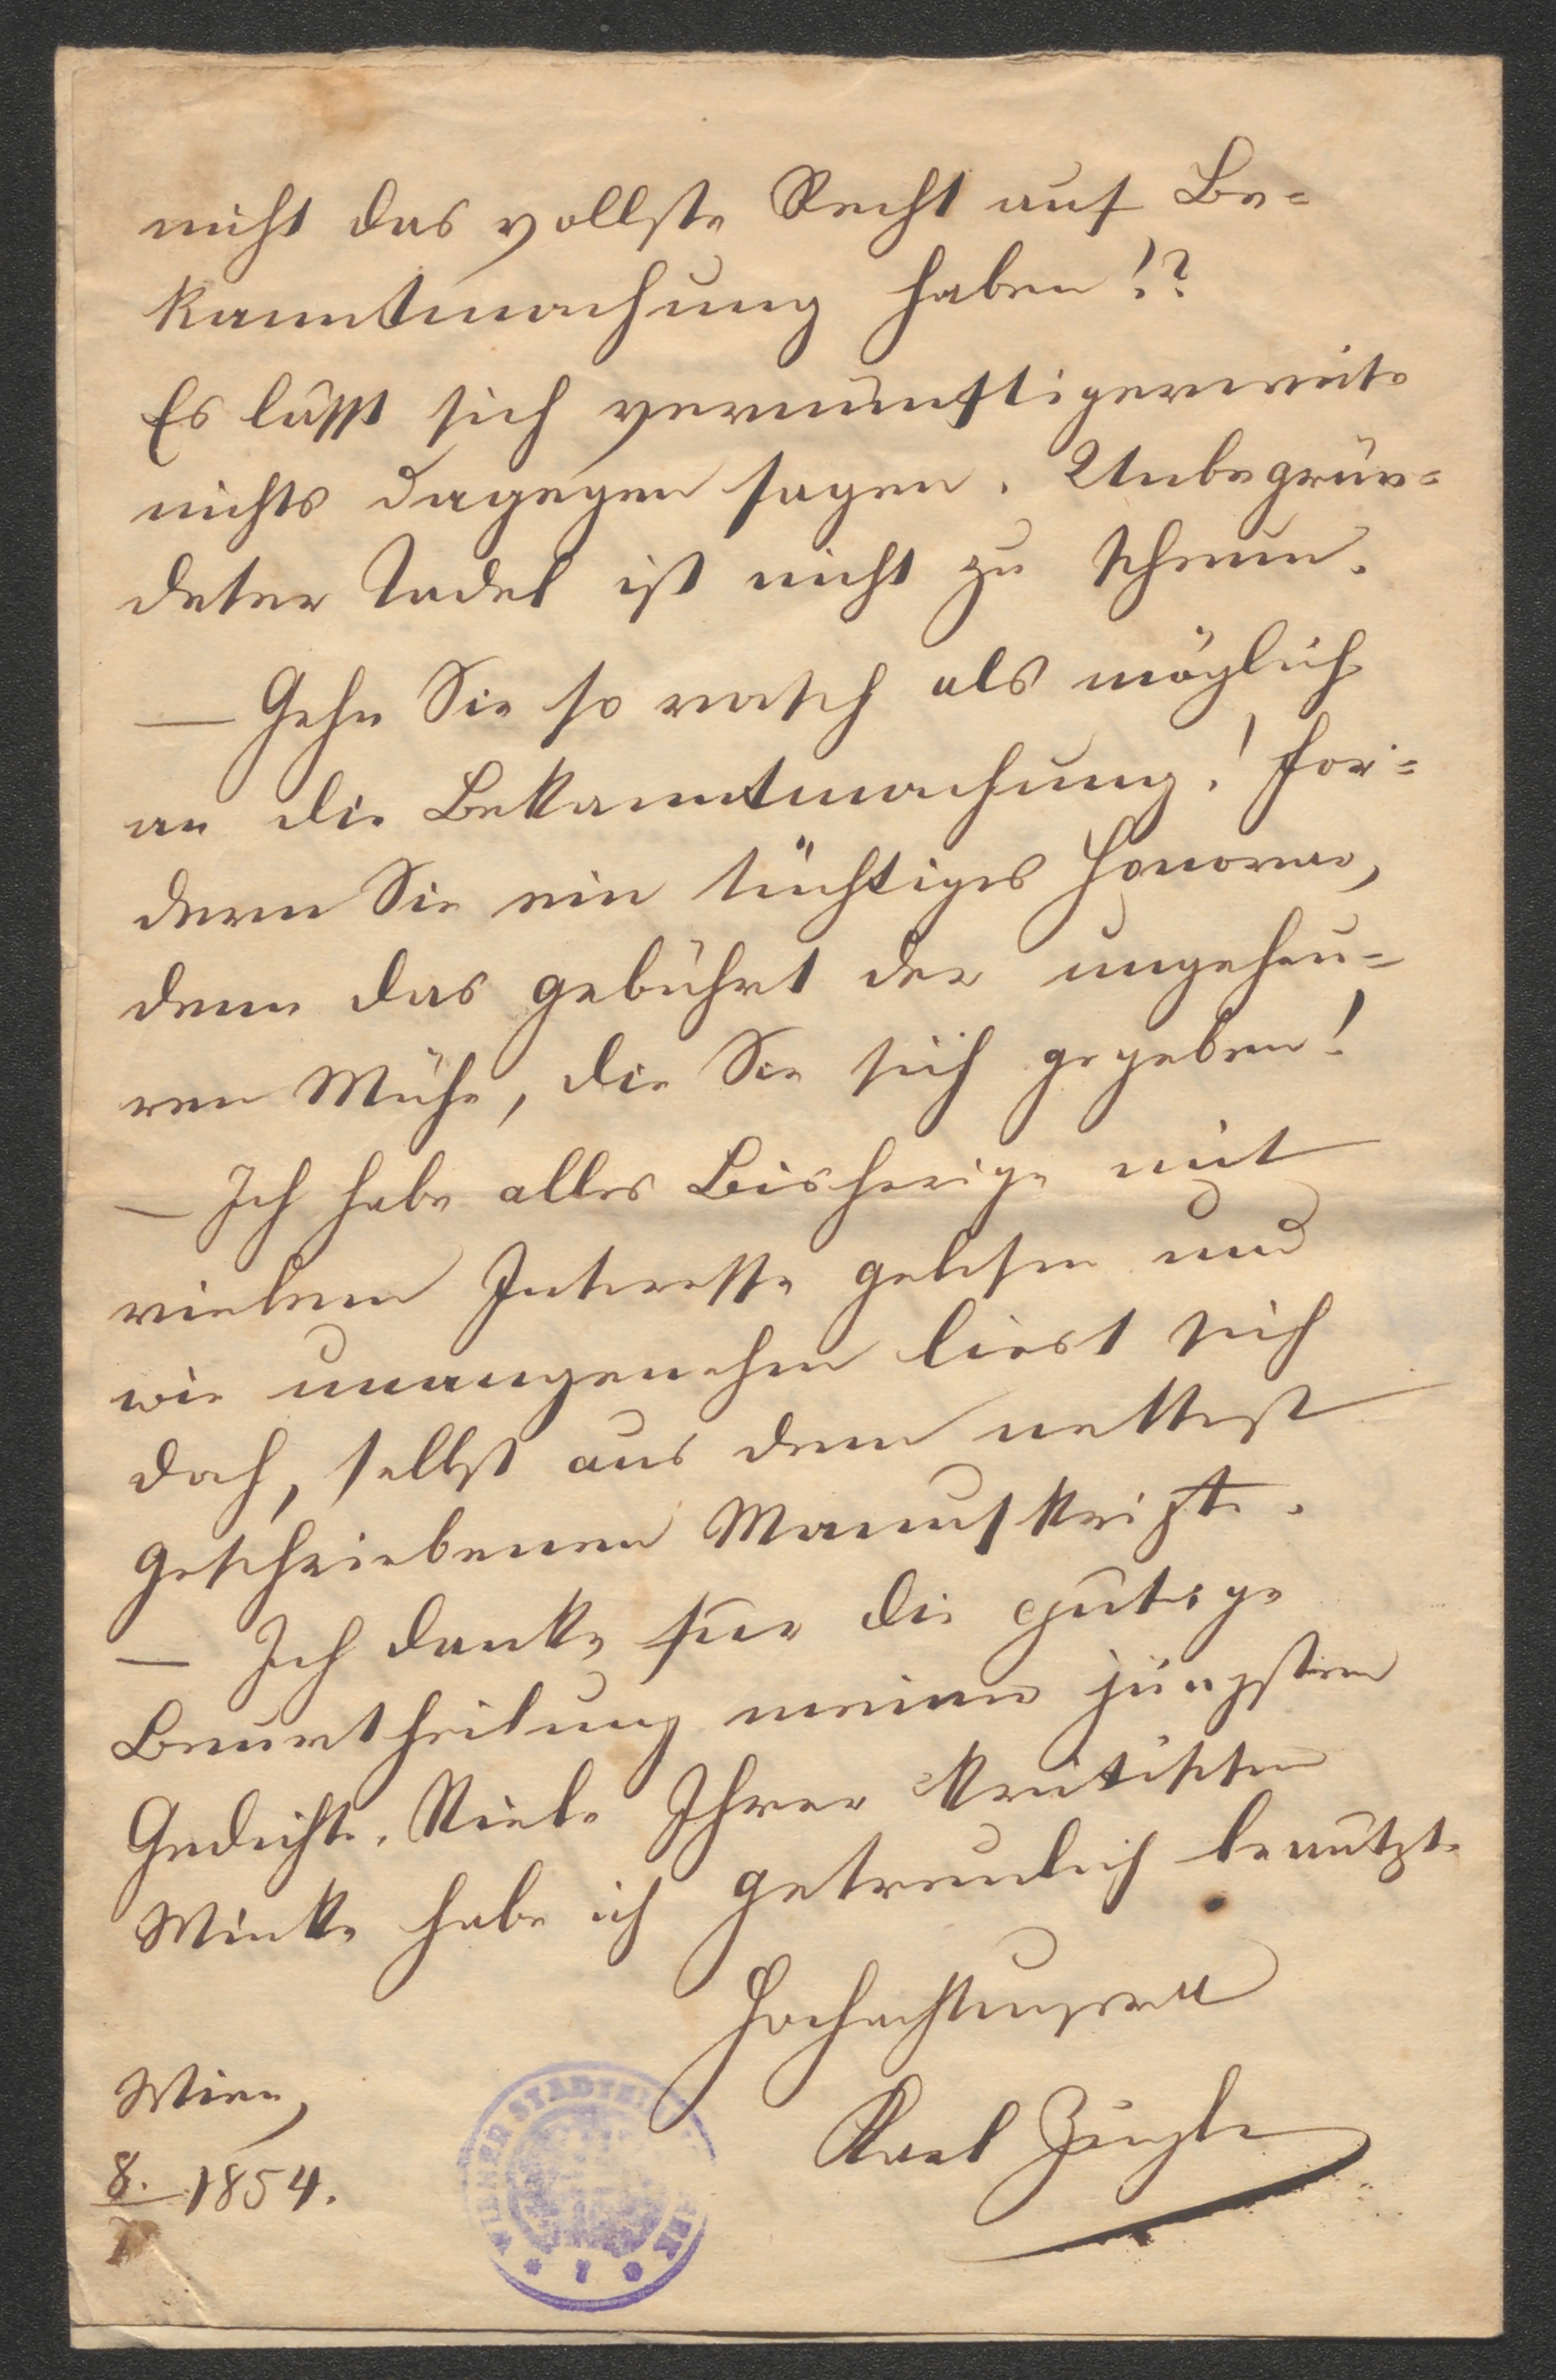 nicht das vollste Recht auf Be=
kanntmachung haben!?
Es läßt sich vernünftigerweise
nichts dagegen sagen. Unbegrün=
deter Tadel ist nicht zu scheuen.
— Gehn Sie so rasch als möglich
an die Bekanntmachung! For=
dern Sie ein tüchtiges Honorar,
denn das gebührt der ungeheu=
ren Mühe, die Sie sich gegeben!
— Ich habe alles Bisherige mit
vielem Interesse gelesen und
wie unangenehm liest sich
doch, selbst aus dem nettest
geschriebenen Manuskripte.
— Ich danke für die gütige
Beurtheilung meiner jüngsten
Gedichte. Viele Ihrer kritischen
Winke habe ich getreulich benützt.
Hochachtungsvoll
Karl Ziegler
Wien,
8. 1854.
WIENER STADTBI